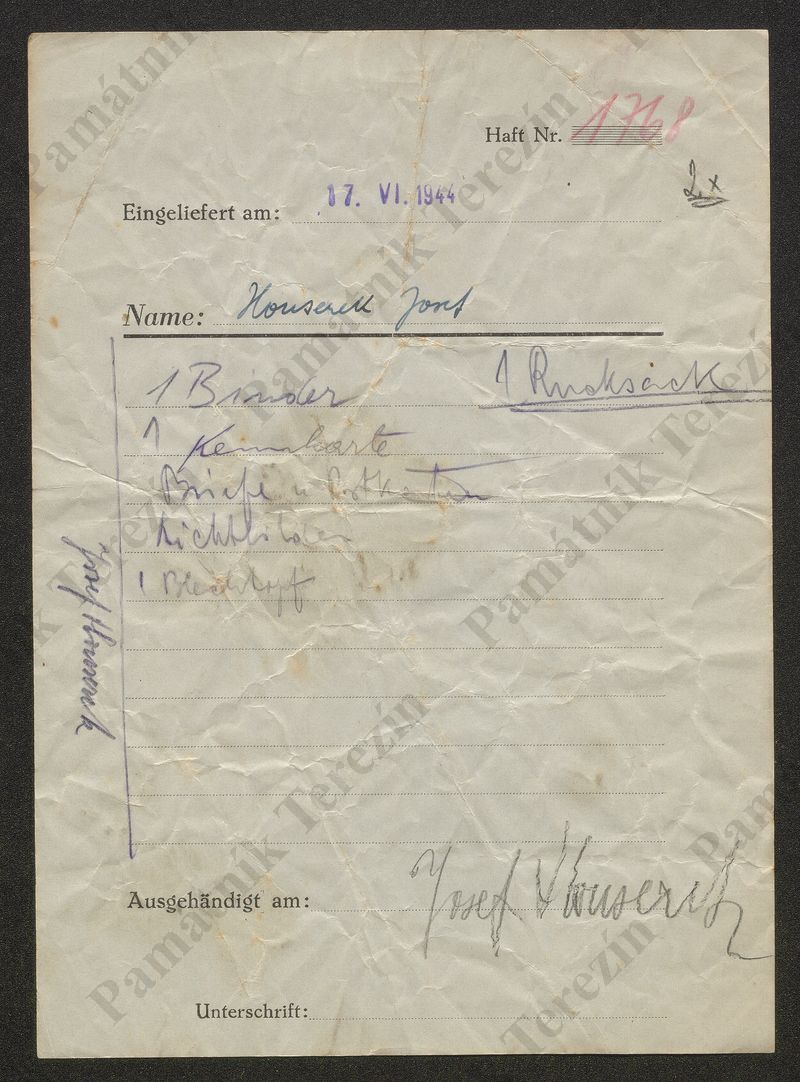 Haft Nr. 1768
2x
Eingeliefert am: 17. VI. 1944
Name: Houserek Josef
1 Binder 1 Rucksack
1 Kennkarte
Briefe u Postkarten
Lichtbilder
1 Blechtopf
Josef Houserek
Ausgehändigt am:
Josef Houserek
Unterschrift:
Památník Terezín